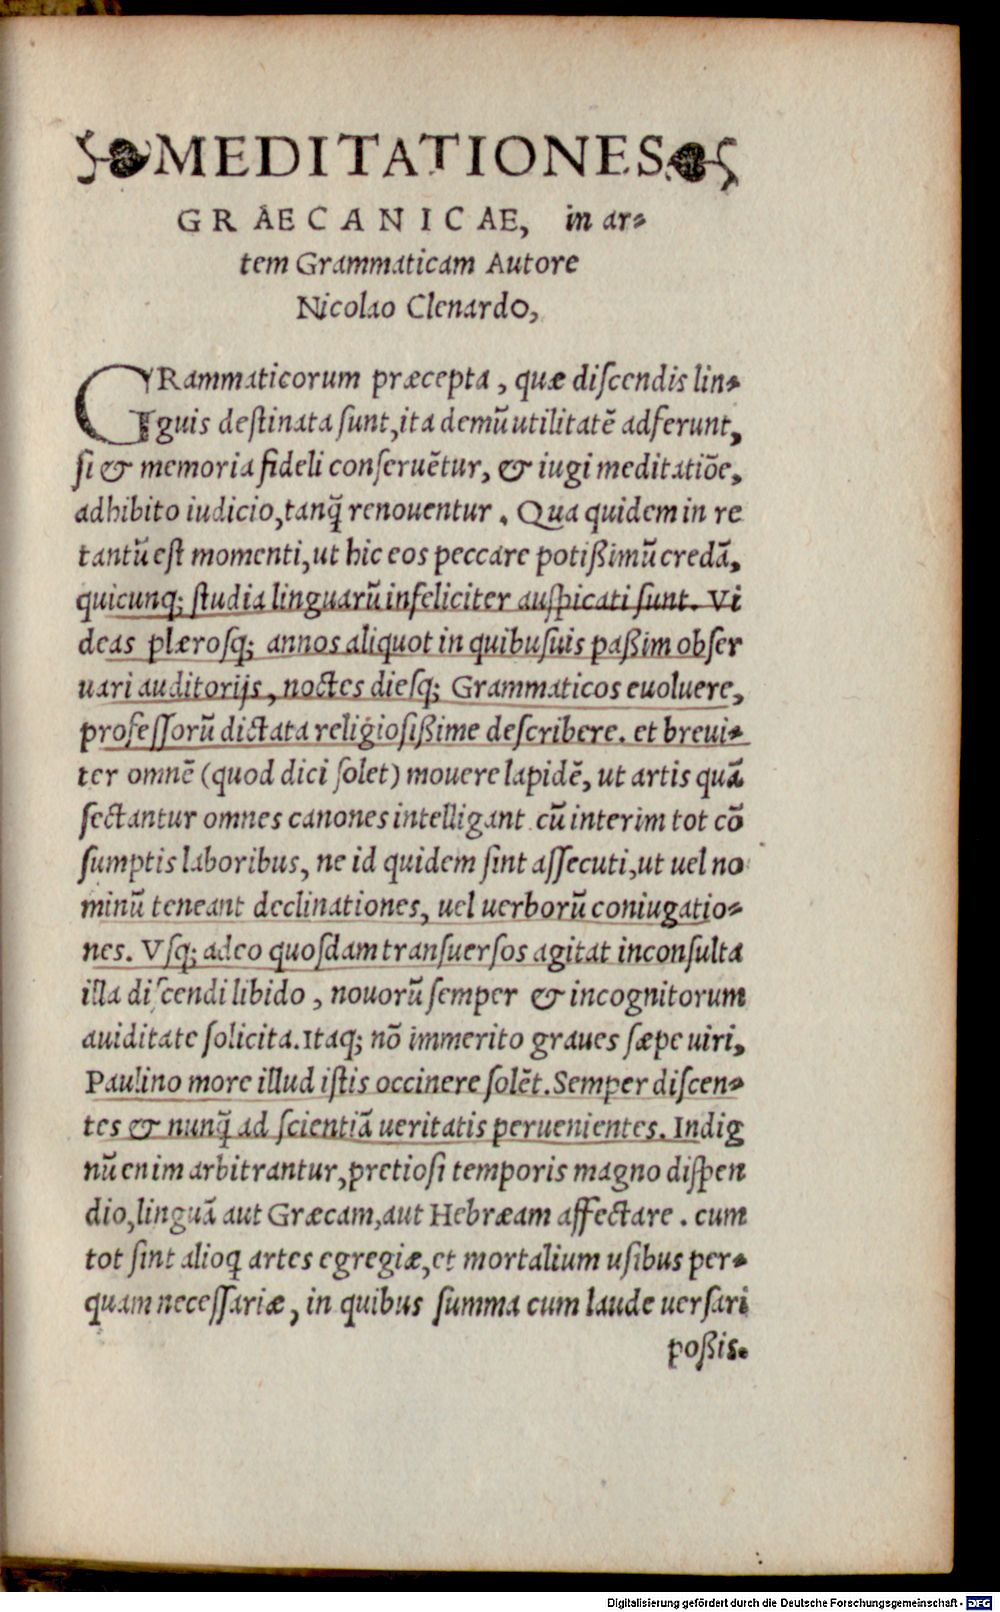 MEDITATIONES
GRAECANICAE, in ar-
tem Grammaticam Autore
Nicolao Clenardo,
GRammaticorum præcepta, quæ diſcendis lin-
guis deſtinata ſunt, ita demũ utilitatẽ adferunt,
ſi & memoria fideli conſeruẽtur, & iugi meditatiõe,
adhibito iudicio, tanq̃ renouentur. Qua quidem in re
tantũ eſt momenti, ut hic eos peccare potißimũ credã,
quicunq; ſtudia linguarũ infeliciter auſpicati ſunt. Vi
deas plæroſq; annos aliquot in quibuſuis paßim obſer
uari auditorijs, noctes dieſq; Grammaticos euoluere,
profeſſorũ dictata religioſißime deſcribere. et breui-
ter omnẽ (quod dici ſolet) mouere lapidẽ, ut artis quã
ſectantur omnes canones intelligant. cũ interim tot cõ
ſumptis laboribus, ne id quidem ſint aſſecuti, ut uel no
minũ teneant declinationes, uel uerborũ coniugatio-
nes. Vſq; adeo quoſdam tranſuerſos agitat inconſulta
illa diſcendi libido, nouorũ ſemper & incognitorum
auiditate ſolicita. Itaq; nõ immerito graues ſæpe uiri,
Paulino more illud iſtis occinere ſolẽt. Semper diſcen-
tes & nunq̃ ad ſcientiã ueritatis peruenientes. Indig
nũ enim arbitrantur, pretioſi temporis magno diſpen
dio, linguã aut Græcam, aut Hebræam affectare. cum
tot ſint alioq̃ artes egregiæ, et mortalium uſibus per-
quam neceſſariæ, in quibus ſumma cum laude uerſari
poßis.
Digitalisierung gefördert durch die Deutsche Forschungsgemeinschaft - DFG